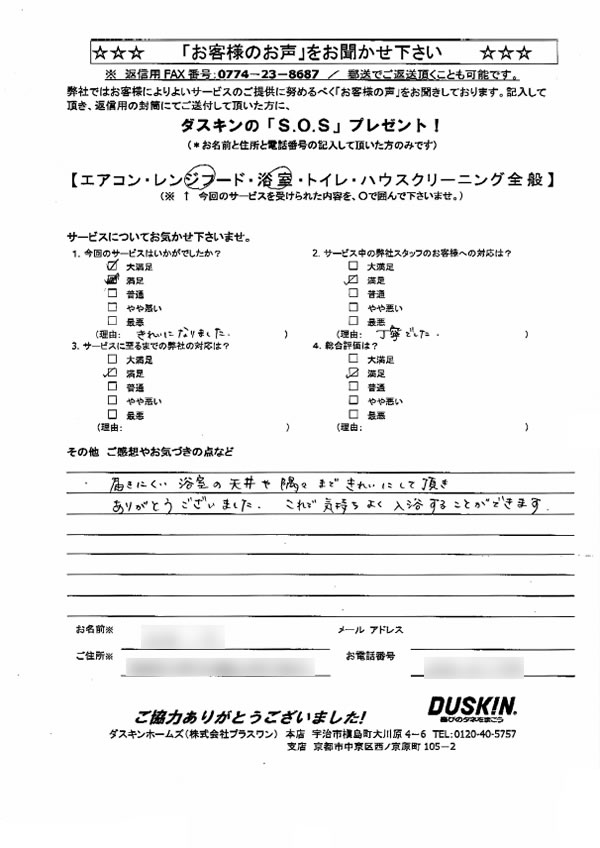 ☆☆☆ 「お客様のお声」をお聞かせ下さい ☆☆☆
※ 返信用FAX番号:0774-23-8687 / 郵送でご返送頂くことも可能です。
弊社ではお客様によりよいサービスのご提供に努めるべく「お客様の声」をお聞きしております。記入して
頂き、返信用の封筒にてご送付して頂いた方に、
ダスキンの「S.O.S」プレゼント!
(*お名前と住所と電話番号の記入して頂いた方のみです)
【エアコン・レンジフード・浴室・トイレ・ハウスクリーニング全般】
(※ ↑ 今回のサービスを受けられた内容を、〇で囲んで下さいませ。)
サービスについてお気かせ下さいませ。
1. 今回のサービスはいかがでしたか?
☑ 大満足
☑ 満足
□ 普通
□ やや悪い
□ 最悪
(理由: きれいになりました. )
2. サービス中の弊社スタッフのお客様への対応は?
□ 大満足
☑ 満足
□ 普通
□ やや悪い
□ 最悪
(理由: 丁寧でした. )
3. サービスに至るまでの弊社の対応は?
□ 大満足
☑ 満足
□ 普通
□ やや悪い
□ 最悪
(理由: )
4. 総合評価は?
□ 大満足
☑ 満足
□ 普通
□ やや悪い
□ 最悪
(理由: )
その他 ご感想やお気づきの点など
・ 届きにくい 浴室の天井や 隅々まで きれいにして頂き
ありがとうございました. これで気持ちよく 入浴することができます.
お名前※
メール アドレス
ご住所※
お電話番号
ご協力ありがとうございました!
DUSKIN.
喜びのタネをまこう
ダスキンホームズ(株式会社プラスワン) 本店 宇治市槇島町大川原4-6 TEL:0120-40-5757
支店 京都市中京区西ノ京原町105-2